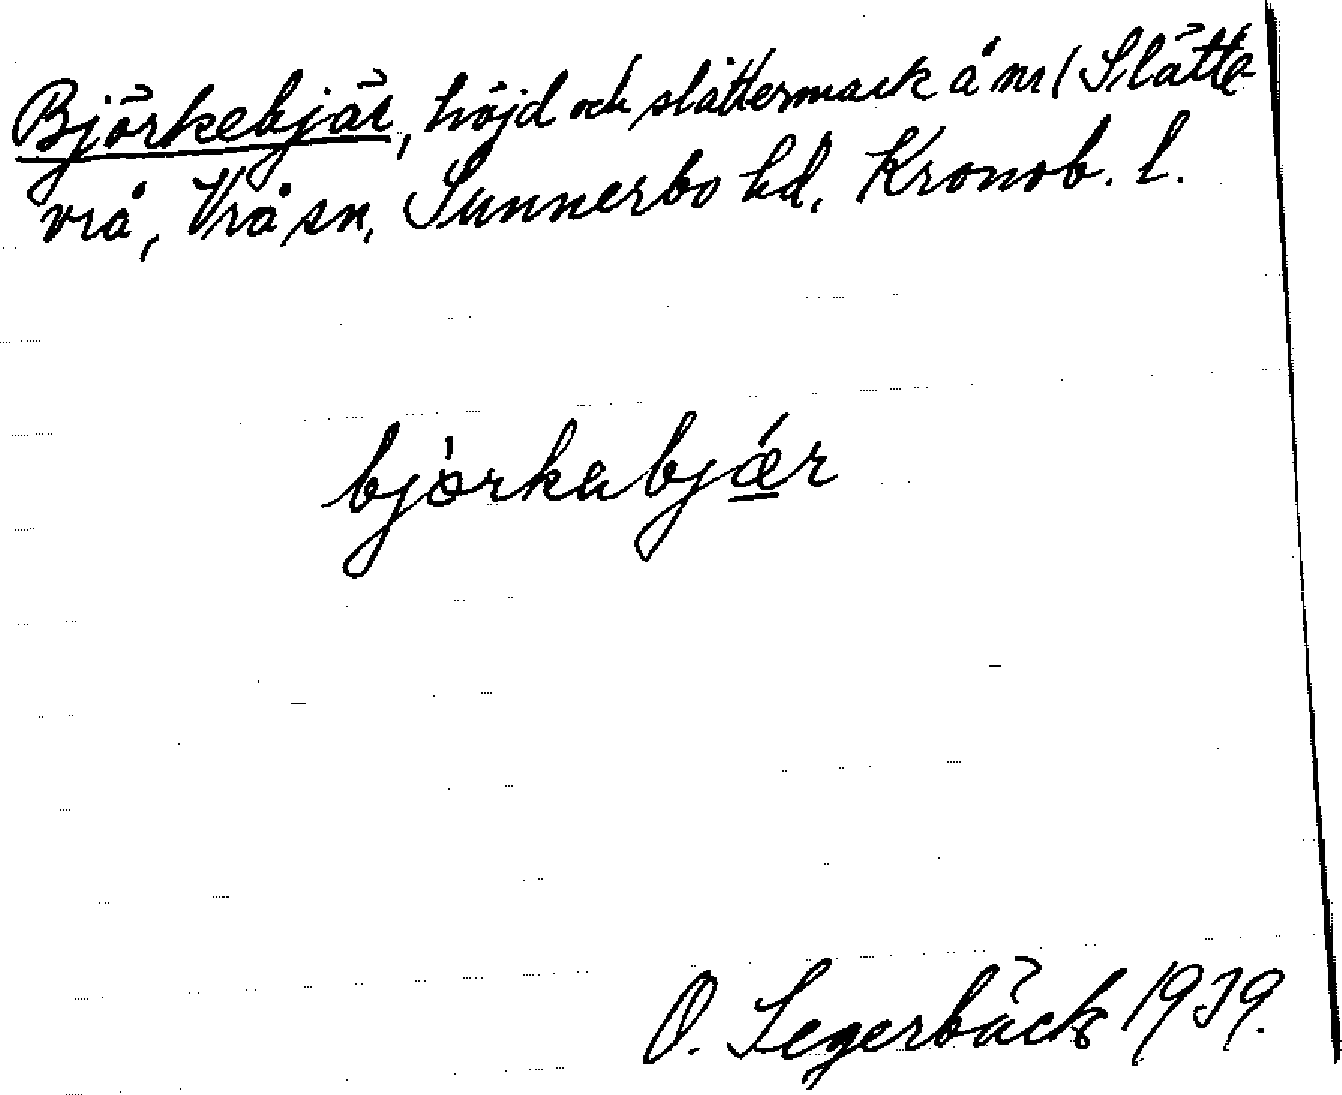 Björkebjär, höjd och slåttermark å nr 1 Slätte-
vrå, Vrå sn, Sunnerbo hd, Kronob. l.
björkabjǽr
O. Segerbäck 1939.